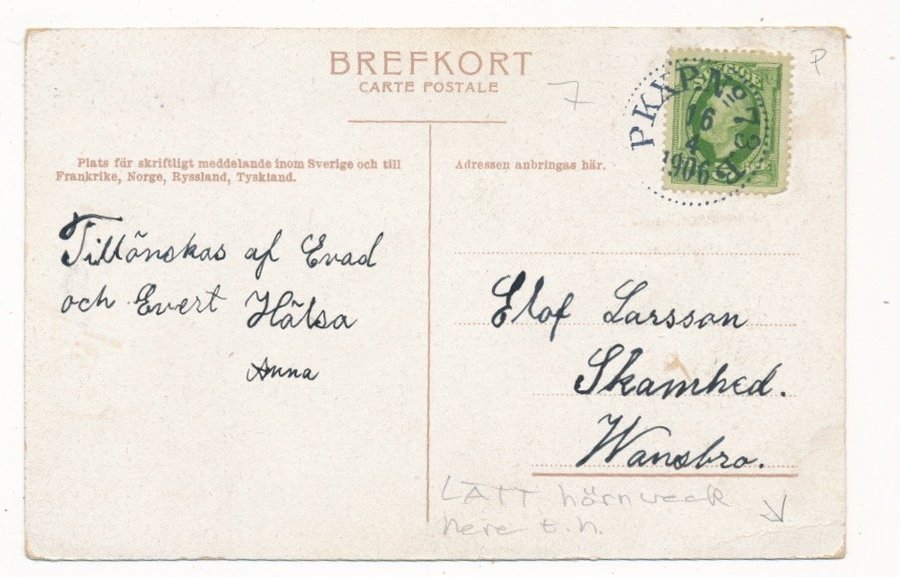 BREFKORT
CARTE POSTALE
7
P
PKXP No 78 B
16
4
1906
Plats för skriftligt meddelande inom Sverige och till
Frankrike, Norge, Ryssland, Tyskland.
Adressen anbringas här.
Tillönskas af Evad
och Evert Hälsa
Anna
Elof Larsson
Skamhed.
Wansbro.
LÄTT hörnveck
nere t.h.